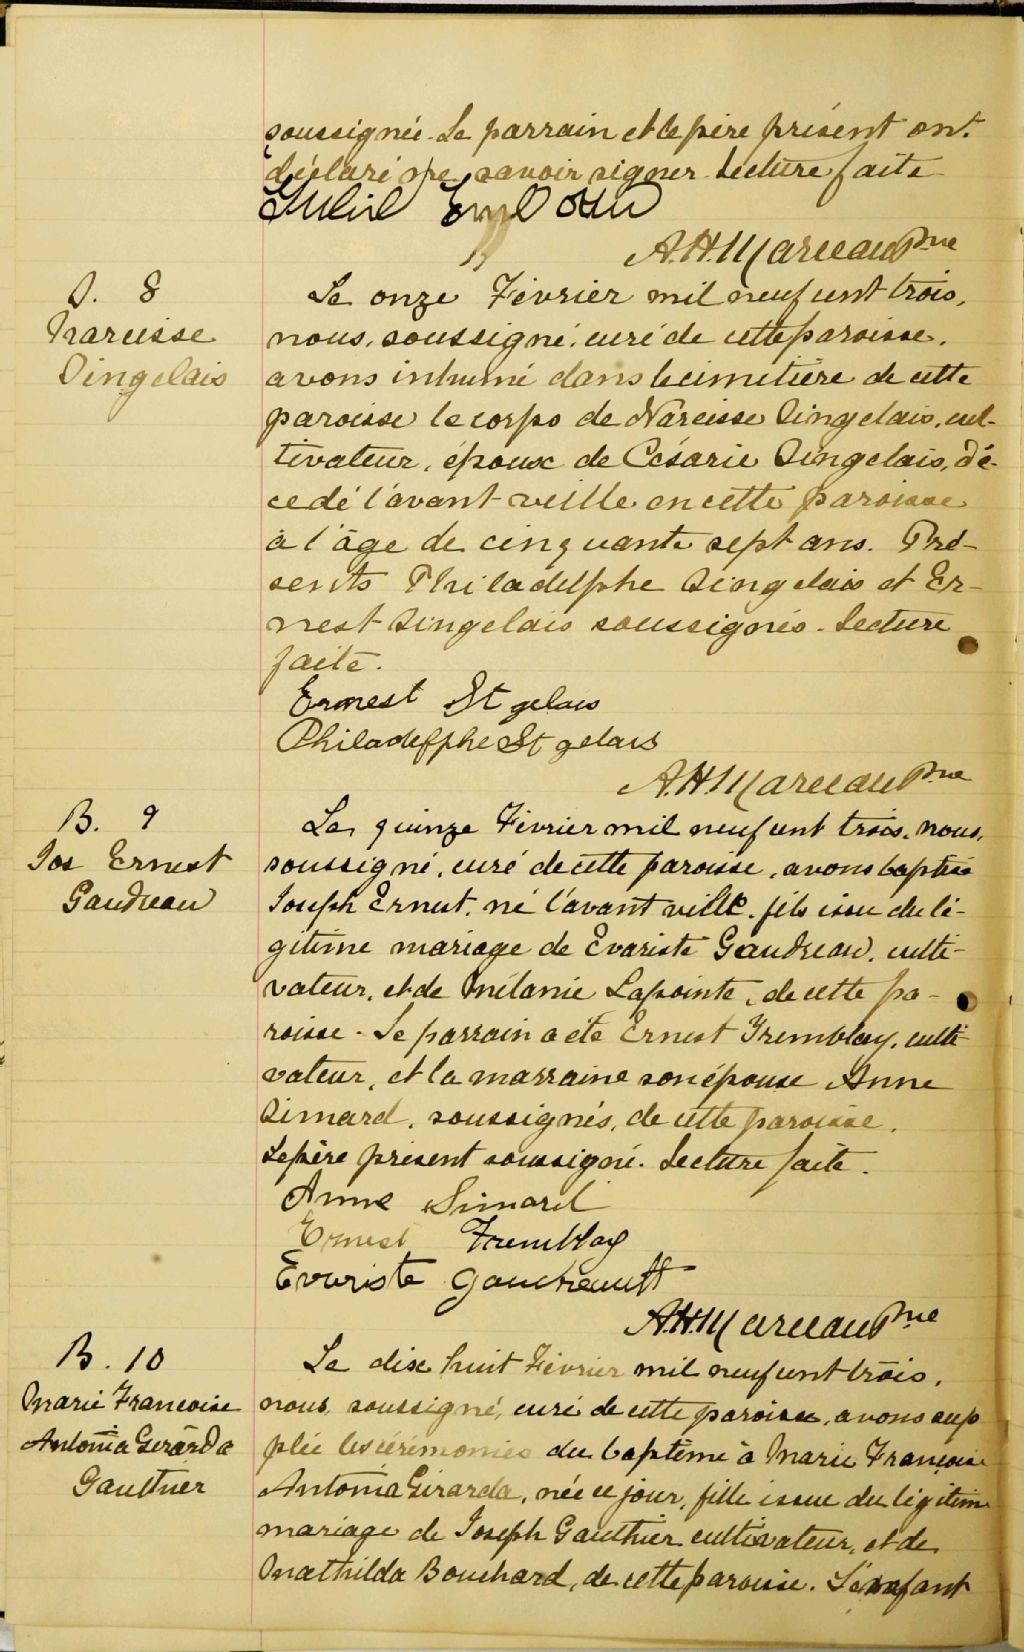 soussignée. Le parrain et le père présent ont
déclaré ne savoir signer. Lecture faite
A.H. Marceau Ptre
S. 8
Narcisse
Singelais
Le onze Février mil neuf cent trois,
nous, soussigné, curé de cette paroisse,
avons inhumé dans le cimetière de cette
paroisse le corps de Narcisse Singelais, cul-
tivateur, époux de Césarie Singelais, dé-
cedé l'avant-veille en cette paroisse
à l'âge de cinquante sept ans. Pré-
sents Philadelphe Singelais et Er-
nest Singelais soussignés. Lecture
faite.
Ernest St gelais
Philadelphe St gelais
A.H. Marceau Ptre
B. 9
Jos Ernest
Gaudreau
Le quinze Février mil neuf cent trois, nous,
soussigné, curé de cette paroisse, avons baptisé
Joseph Ernest, né l'avant veille, fils issu du lé-
gitime mariage de Evariste Gaudreau, culti-
vateur, et de Mélanie Lapointe, de cette pa-
roisse. Le parrain a été Ernest Tremblay, culti
vateur, et la marraine son épouse Anne
Simard, soussignés, de cette paroisse.
Le père présent soussigné. Lecture faite.
Anne Simard
Ernest Tremblay
Evariste Gaudreault
A.H. Marceau Ptre
B. 10
Marie Francoise
Antonia Gerarda
Gauthier
Le dix huit Février mil neuf cent trois,
nous, soussigné, curé de cette paroisse, avons sup
plée les cérémonies du baptême à Marie Françoise
Antonia Girarda, née ce jour, fille issue du légitime
mariage de Joseph Gauthier cultivateur, et de
Mathilda Bouchard, de cette paroisse. L'enfant